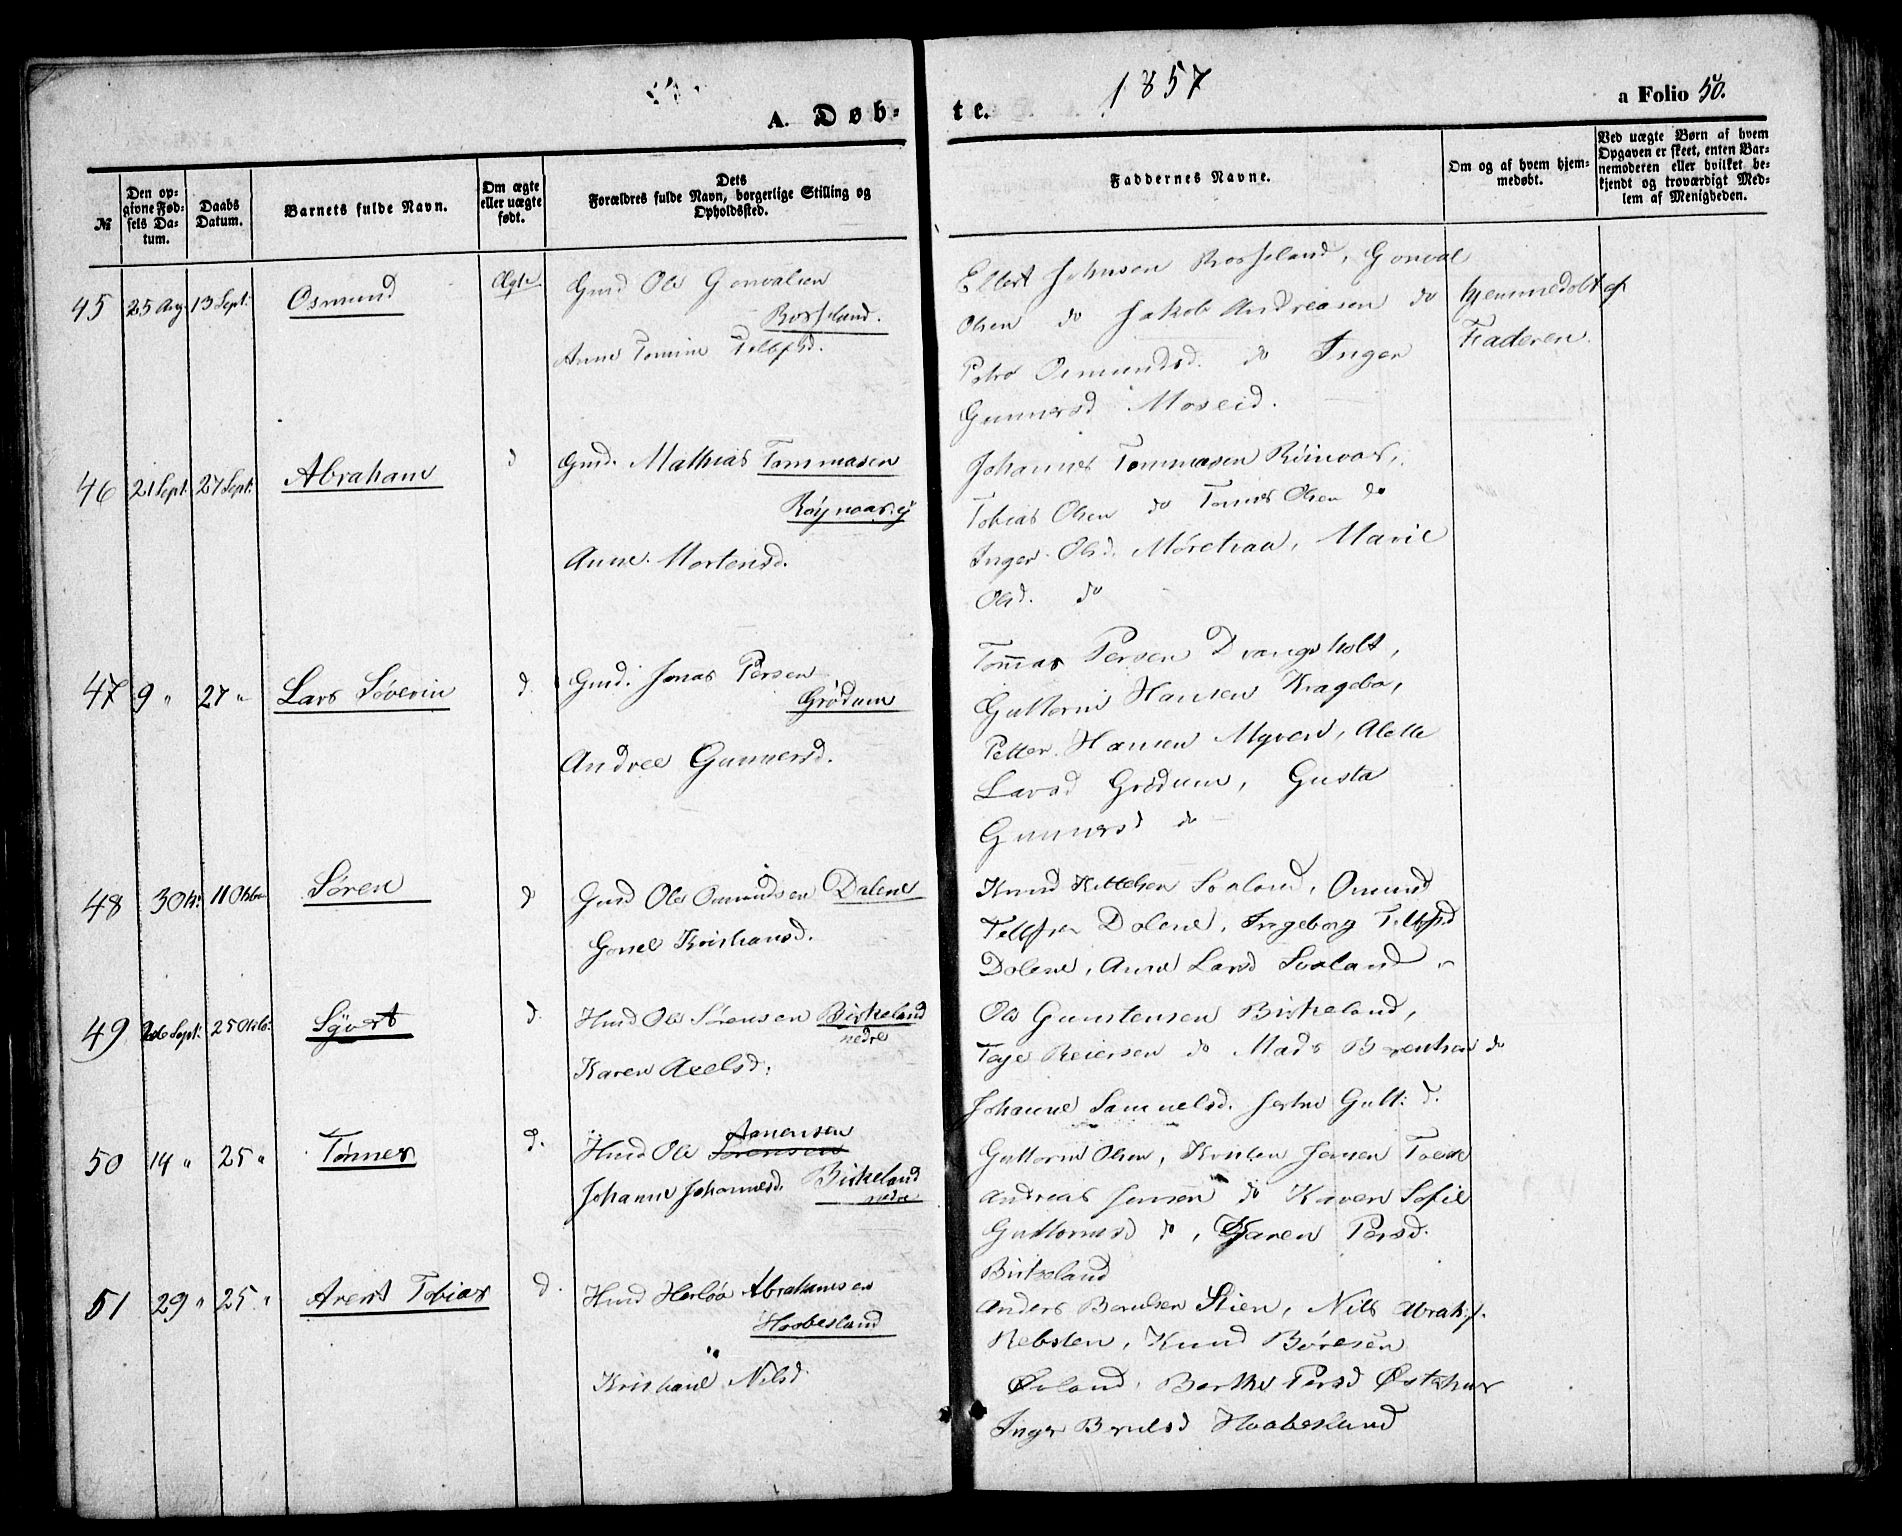 1857
A. Døb-
te.
a Folio 50.
№
Den opgivne Fødsels Datum.
Daabs Datum.
Barnets fulde Navn.
Om ægte eller uægte født.
Dets Forældres fulde Navn, borgerlige Stilling og Opholdssted.
Faddernes Navne.
Om og af hvem hjemmedøbt.
Ved uægte Børn af hvem Opgaven er skeet, enten Barnemoderen eller hvilket bekjendt og troværdigt Medlem af Menigheden.
45 25 Aug 13 Sept: Osmund Ægte Gmd Ole Gonvalsen
Rosseland.
Anne Tomine Tellefsd.
Ellert Johnsen Rosseland, Gonval
Olsen do Jakob Andreasen do
Petro Osmundsd. do Inger
Gunnersd Moseid.
hjemmedøbt af
Faderen.
46 21 Sept: 27 Sept: Abraham d Gmd. Mathias Tommasen
Røynaas
Anne Mortensd.
Johannes Tommasen Röinaas,
Tobias Olsen do Tomas Olsen do
Inger Olsd. Møretraa, Marie
Olsd. do
47 9 " 27 " Lars Søverin d. Gmd. Jonas Persen
Grødum
Andree Gunnersd.
Tommas Persen Drangsholt,
Guttorm Hansen Kragebo,
Petter Hansen Myren, Alette
Larsd Grødum, Gusta
Gunnersd do
48 3 Okt: 11 Oktbr Søren d Gmd Ole Osmundsen Dalene
Gonel Kristiansd.
Knud Kittelsen Soland, Omund
Tellfsen Dolene, Ingeborg Tellfsd
Dolene, Anne Larsd Soland
49 26 Sept: 25 Oktb: Syvert d. Hmd Ole Sørensen Birkeland
nedre
Karen Axelsd.
Ole Gunstensen Birkeland,
Terje Reiersen do Mads Berentsen do
Johanne Samuelsd. Gutt: d.
50 14 " 25 " Tønnes d. Hmd Ole Sørensen Aanensen
Johanne Johannesd. Birkeland
nedre
Guttorm Olsen, Kristen Jensen
Andreas Jensen do Karen Sofie
Guttormsd do, Karen Persd.
Birkeland
51 29 " 25 " Arent Tobias d. Hmd Herløv Abrahamsen
Haabesland
" Kristiane Nilsd.
Anders Berulsen Stien, Nils Abrahs.
Rebsten, Knud Børesen
Øvland, Berthe Persd Østerhus
Inger Berulsd Haabesland